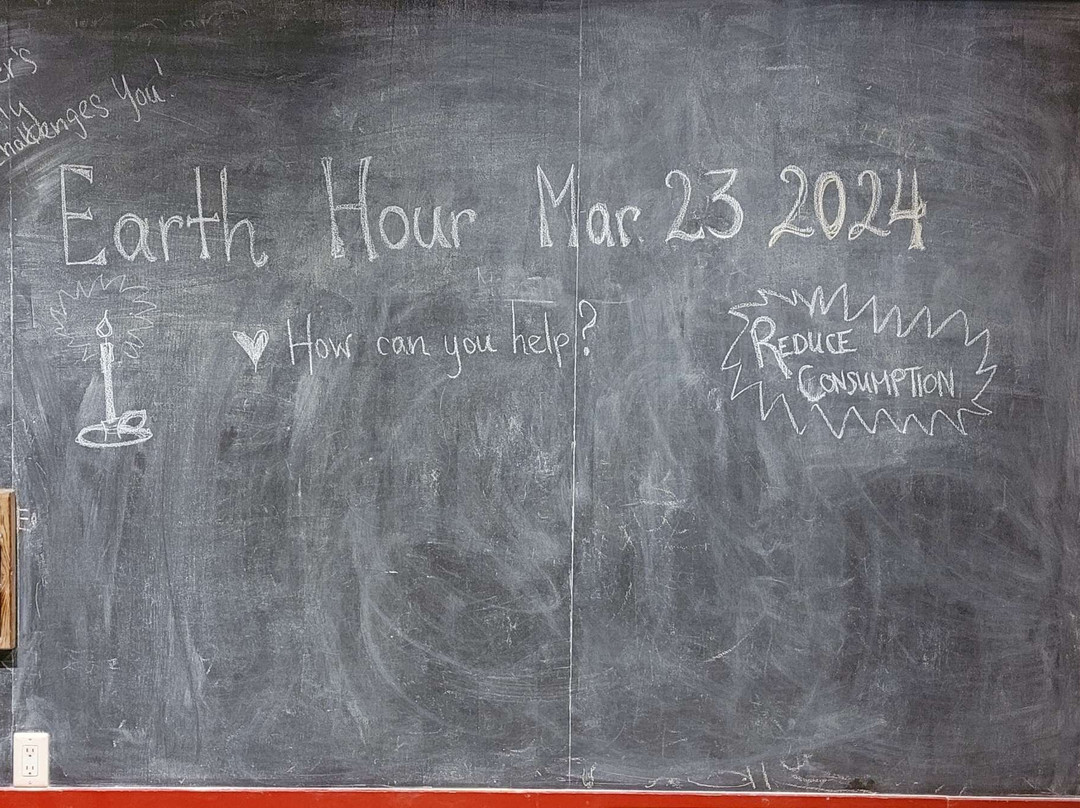 er's
ly
Challenges You!
Earth Hour Mar. 23 2024
♥ How can you help?
REDUCE
CONSUMPTION